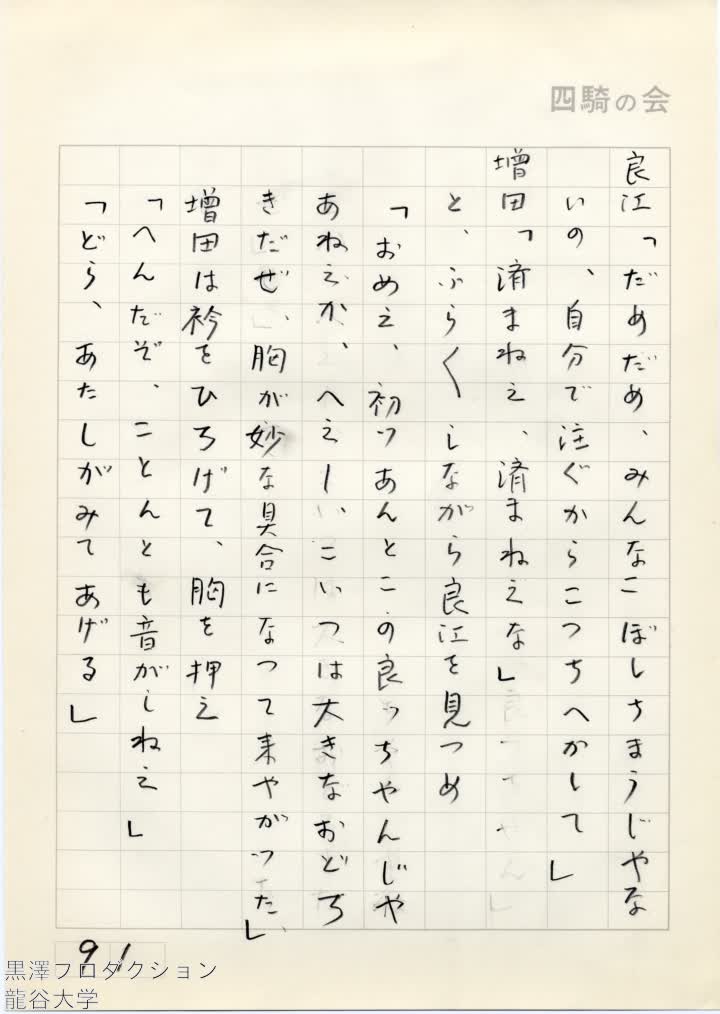 四騎の会
良江「だめだめ、みんなこぼしちまうじやな
いの、自分で注ぐからこつちへかして」
増田「済まねえ、済まねえな」
と、ふらく／＼しながら良江を見つめ
「おめえ、初つあんとこの良つちやんじや
あねえか、へえー、こいつは大きなおどろ
きだぜ、胸が妙な具合になつて来やがつた」
増田は衿をひろげて、胸を押え
「へんだぞ、ことんとも音がしねえ」
「どら、あたしがみてあげる」
91
黒澤プロダクション
龍谷大学